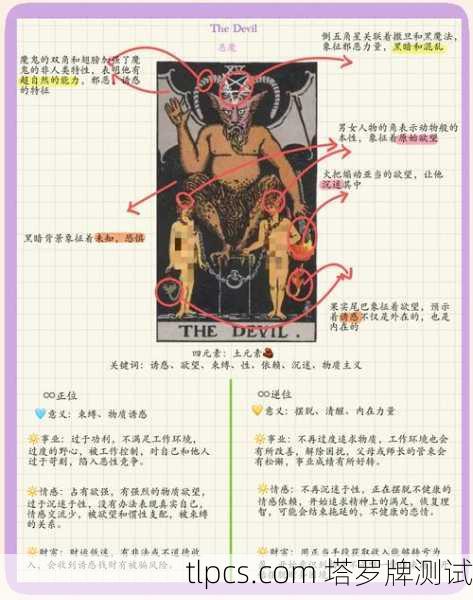 The Devil
恶魔
倒五角星关联着撒旦和黑魔法，
象征邪恶力量，黑暗和混乱
魔鬼的双角和翅膀加强了魔
鬼的非人类特性，表明他有
超自然的能力，邪恶、诱惑
的特征
男女人物的角表示动物般的
本性，象征着原始欲望
火把煽动亚当的欲望，让他
沉迷其中
黑暗背景象征着未知，恐惧
果实尾巴象征着欲望，预示
着诱惑不仅是外在的，也是
内在的
THE DEVIL.
四元素：土元素
关键词：诱惑、欲望、束缚、性、依赖、沉迷、物质主义
正位
意义：束缚、物质诱惑
事业：过于功利，不满足工作环境，
过度的野心，被工作控制，对自己和他人
过于苛刻，陷入恶性竞争。
情感：占有欲强，有强烈的物质欲望，
过于沉迷于性，没有办法表现真实自己，
情感交流少，被欲望和惯性支配，被束缚
的关系。
财富：财运低迷，有非法或不道德收
入，会收到诱惑找财有被骗风险。
逆位
意义：摆脱、清醒、内在力量
事业：不再过度追求物质，工作环境也会
有所改善，解除困扰，父母或师长的管束会
有松懈，事业成绩有所好转。
情感：不再沉迷于性，正在摆脱不健康的
情感依赖，开始追求精神上的满足，恢复理
智，可能会结束拖延的，不健康的恋情。
财富：用正当手段获取收入能够转亏为
tlpcs.com 塔罗牌测试